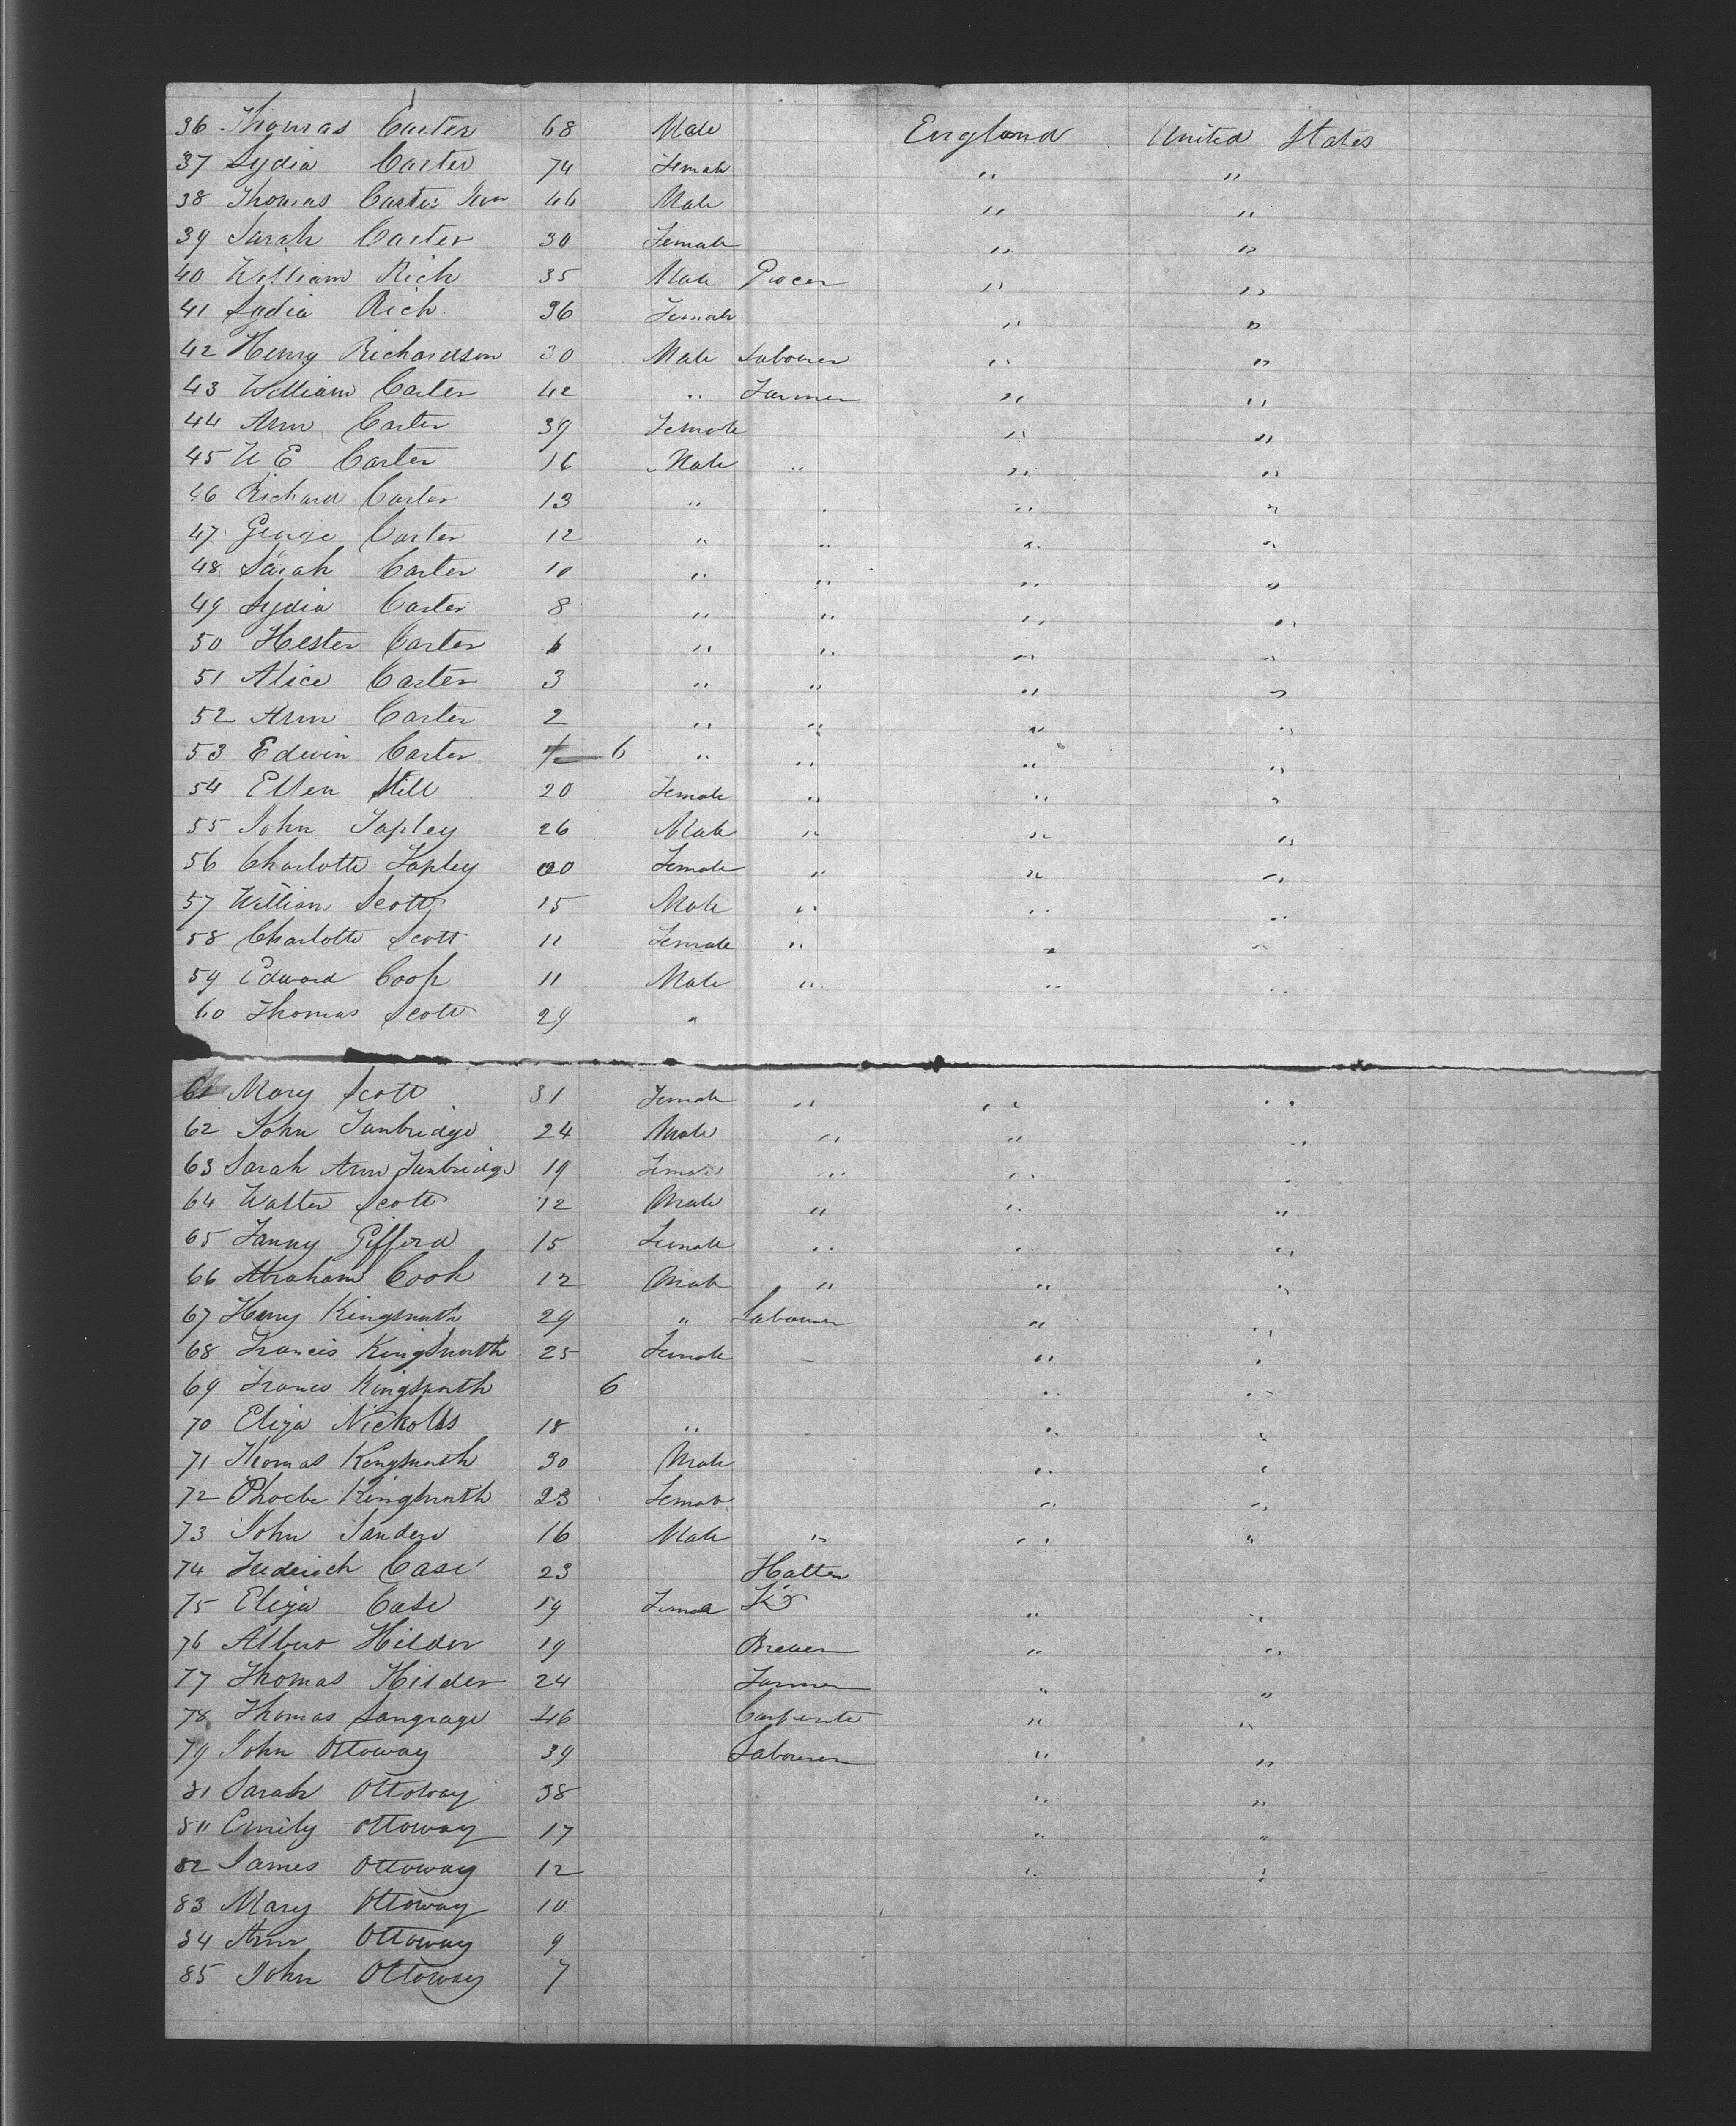 36 Thomas Carter 68 Male England United States
37 Lydia Carter 74 Female " "
38 Thomas Carter Jun 46 Male " "
39 Sarah Carter 30 Female " "
40 William Rich 35 Male Grocer " "
41 Lydia Rich 36 Female " "
42 Henry Richardson 30 Male Labourer " "
43 William Carter 42 " Farmer " "
44 Ann Carter 39 Female " "
45 W E Carter 16 Male " " "
46 Richard Carter 13 " " " "
47 George Carter 12 " " " "
48 Sarah Carter 10 " " " "
49 Lydia Carter 8 " " " "
50 Hester Carter 6 " " " "
51 Alice Carter 3 " " " "
52 Ann Carter 2 " " " "
53 Edwin Carter 6 " " " "
54 Ellen Still 20 Female " " "
55 John Tapley 26 Male " " "
56 Charlotte Tapley 20 Female " " "
57 William Scott 15 Male " " "
58 Charlotte Scott 11 Female " " "
59 Edward Cook 11 Male " " "
60 Thomas Scott 29 "
61 Mary Scott 31 Female " " "
62 John Tunbridge 24 Male " " "
63 Sarah Ann Tunbridge 19 Female " " "
64 Walter Scott 12 Male " " "
65 Fanny Gifford 15 Female " " "
66 Abraham Cook 12 Male " " "
67 Henry Kingsnorth 29 " Labourer " "
68 Francis Kingsnorth 25 Female " "
69 Frances Kingsnorth 6 " "
70 Eliza Nickolls 18 " " "
71 Thomas Kingsnorth 30 Male " "
72 Phoebe Kingsnorth 23 Female " "
73 John Sanders 16 Male " " "
74 Frederick Case 23 Hatter
75 Eliza Case 19 Female " "
76 Albert Hilder 19 Brewer " "
77 Thomas Hilder 24 Farmer " "
78 Thomas Langrage 46 Carpenter " "
79 John Ottoway 39 Labourer " "
81 Sarah Ottoway 38 " "
80 Emily Ottoway 17 " "
82 James Ottoway 12 " "
83 Mary Ottoway 10
84 Ann Ottoway 9
85 John Ottoway 7